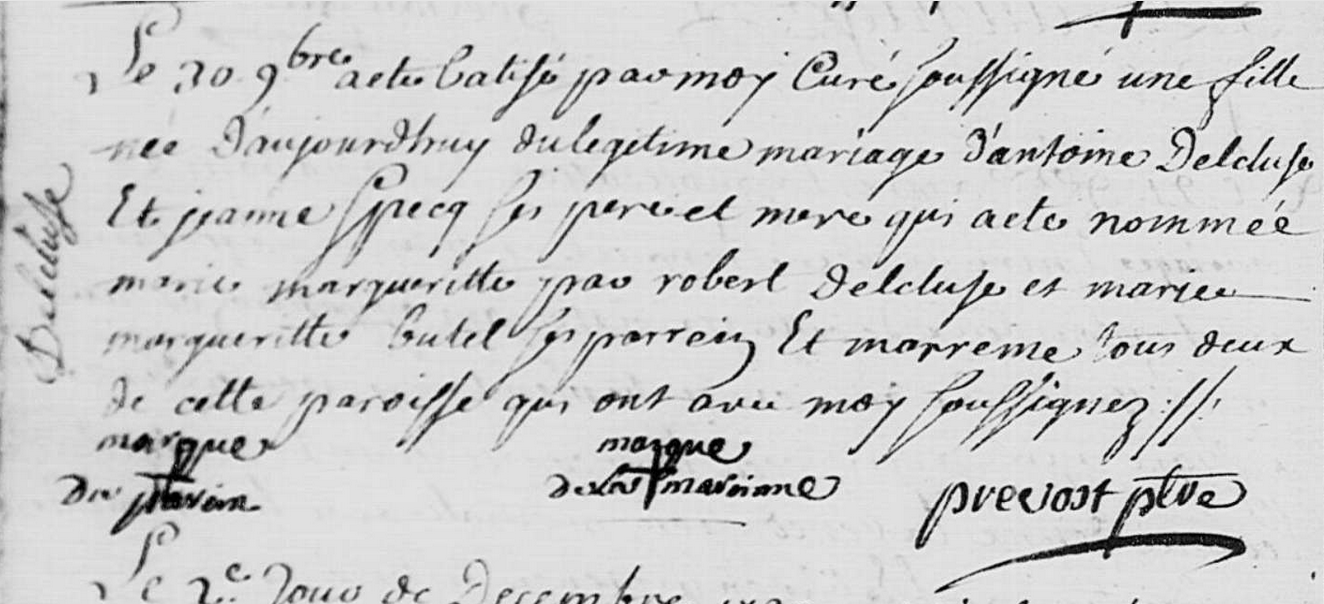 Delcluse
Le 30 9bre acte batisé par moy Curé soussigné une fille
née d'aujourdhuy du legitime mariage d'antoine Delcluse
Et jeanne Specq ses pere et mere qui acte nommée
marie margueritte par robert Delcluse et marie
margueritte butel ses parrein Et marreine tous deux
de cette paroisse qui ont avec moy soussignez ://:
marque marque
du parein de la mareinne prevost ptre
Le 2e Jour de Decembre